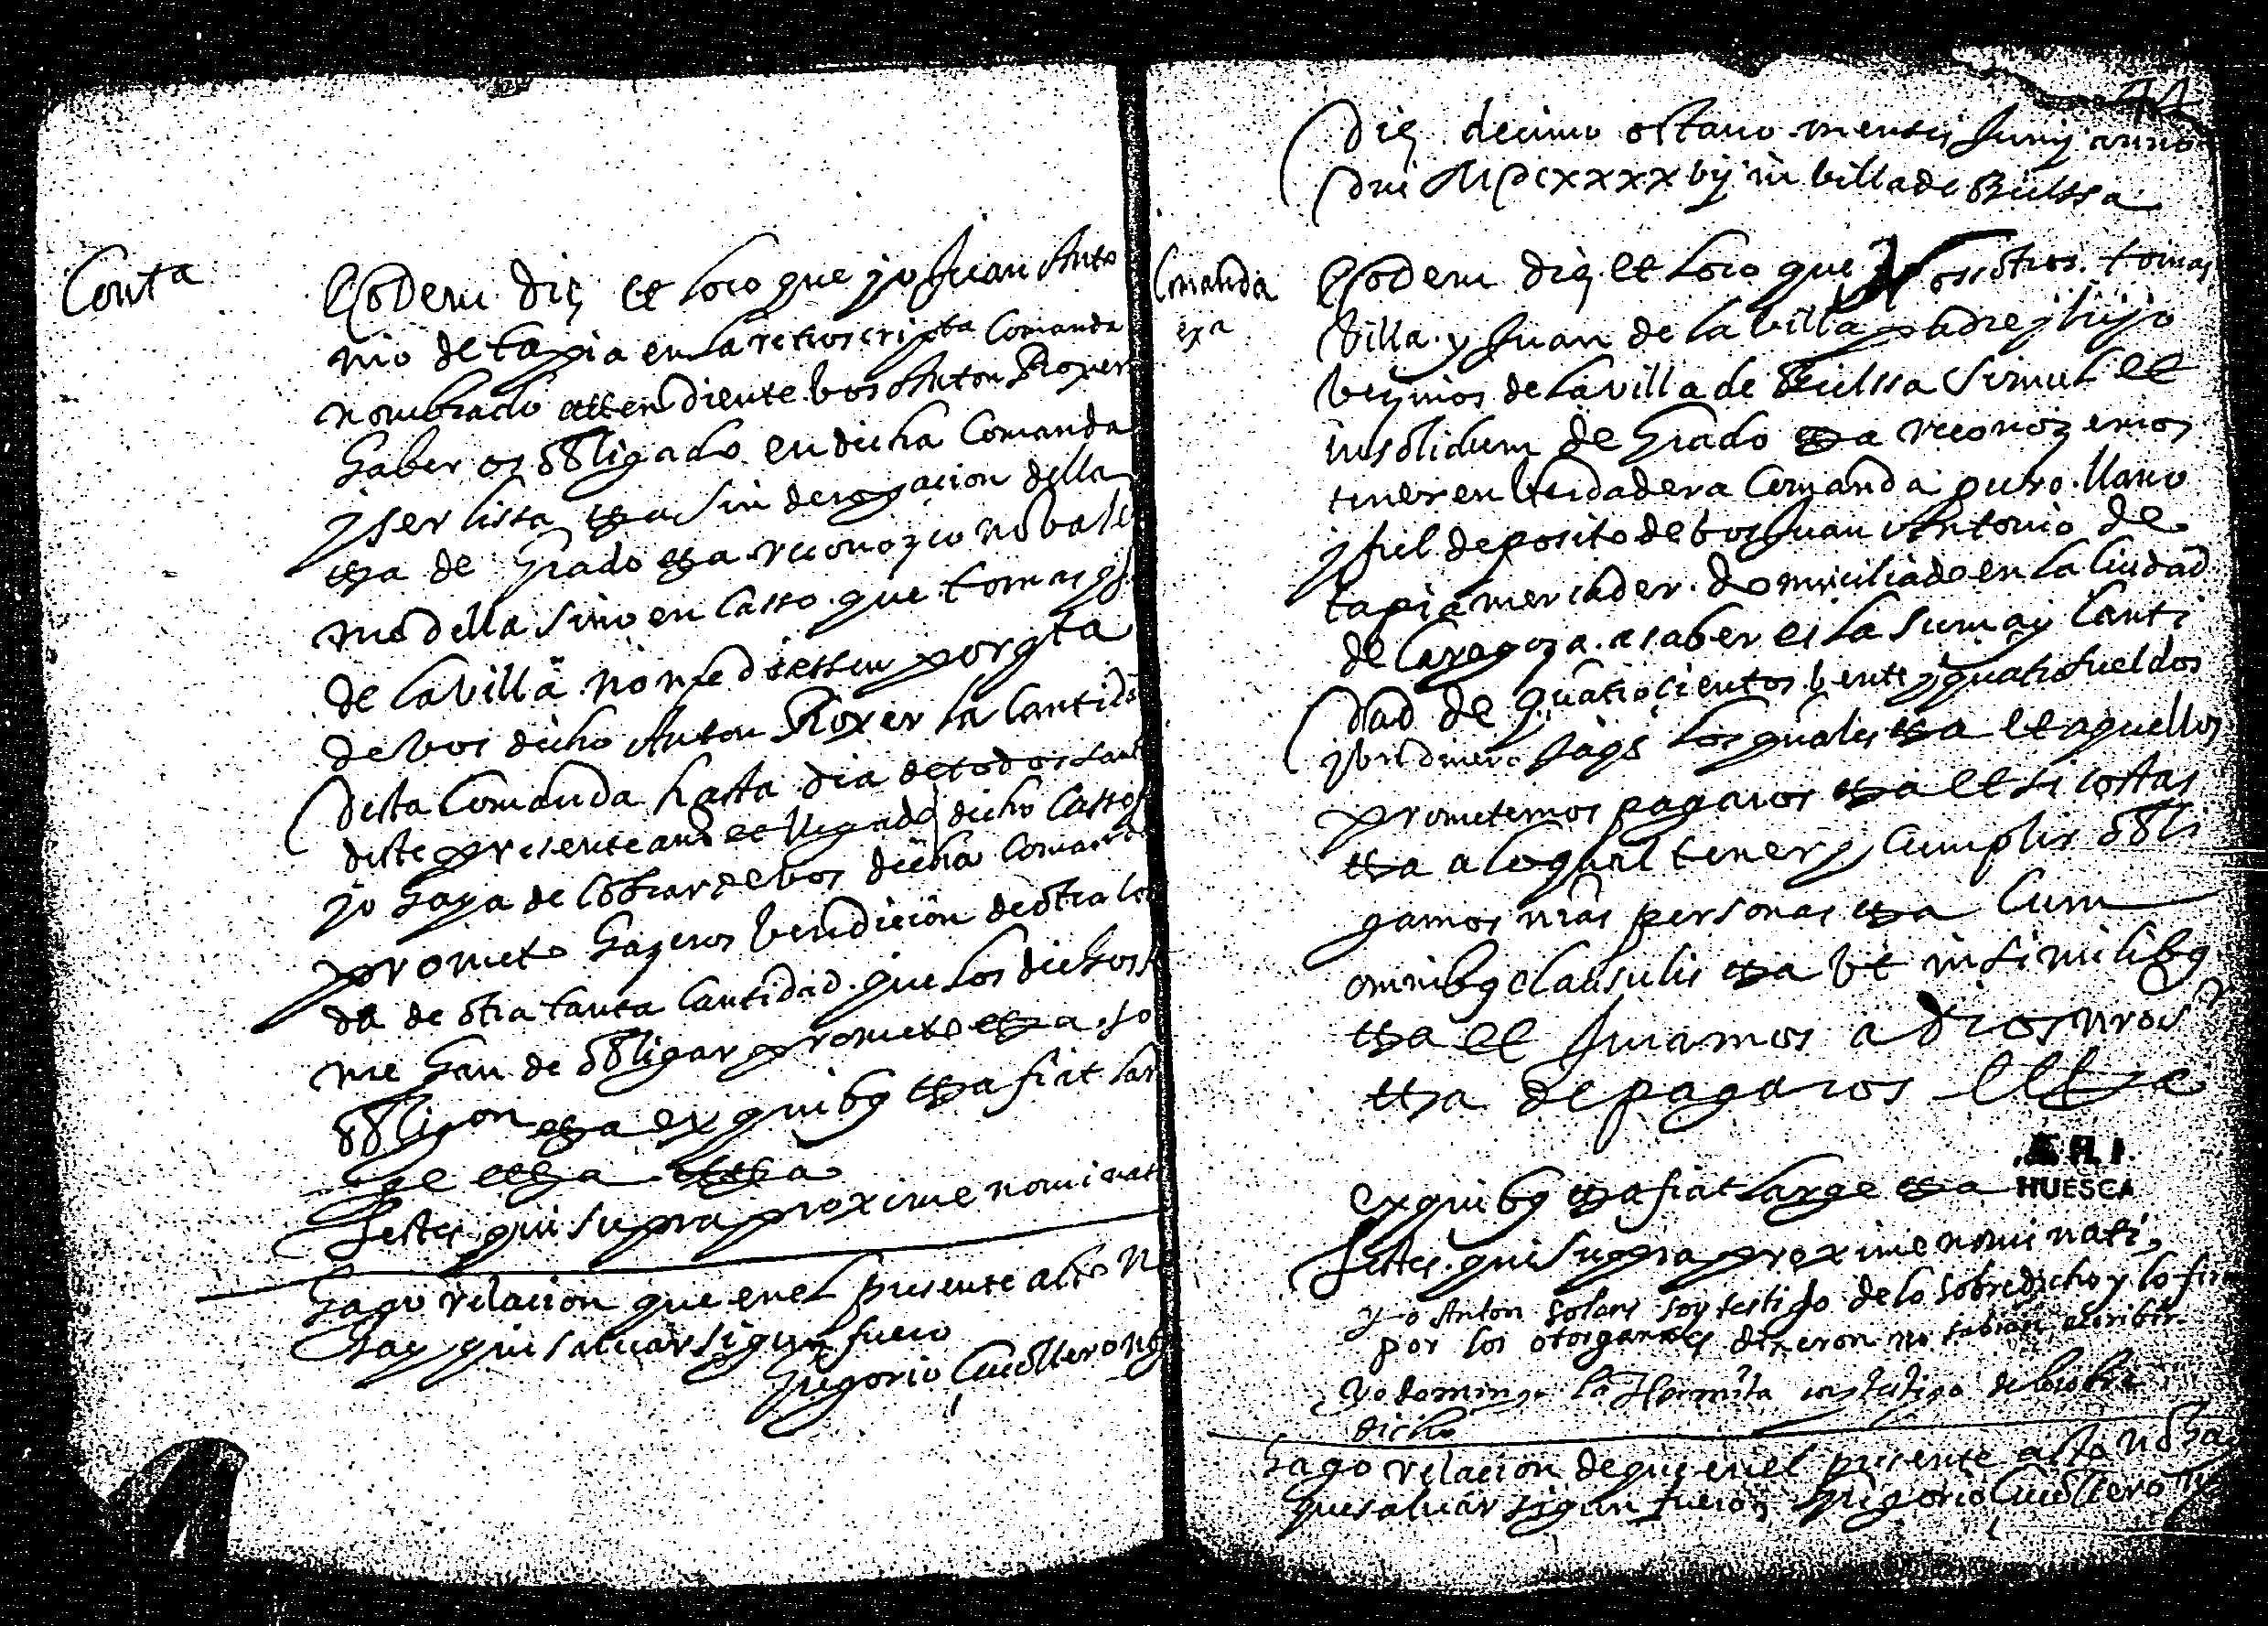 Conta
Eodem die et loco que yo Juan Anto
nio de tapia en la retroscripta Comanda
nombrado attendiente bos Anton Roxer
haber os obligado en dicha Comanda
y ser lissa etta sin derogacion della
etta de Grado etta reconozco no bale
me della sino en Casso que tomas
de la villa no me diessen por
de bos dicho Anton Roxer la Cantid
desta Comanda hasta dia de todos sant
deste presente dicho Casso
yo haya de Cobrar de bos dicha Comanda
prometo hazeros bendicion de otra
da de otra tanta Cantidad que los dichos
me han de obligar prometo etta so
obligon etta ex quibus etta fiat lar
ge etta
Testes qui supra proxime nominat
Hago relacion que en el presente acto no
hay que salvar sigun fuero
Gregorio
44
Die decimo octavo mensis Junij anno
dni MDCxxxxvij in villa de Bielssa
Comanda
Eodem die et loco que Nosotros tomas
villa y Juan de la villa padre y hijo
bezinos de la villa de Bielssa simul et
insolidum de Grado etta reconozemos
tener en berdadera Comanda puro llano
y fiel deposito de bos Juan Antonio de
tapia mercader domiciliado en la Ciudad
de Caragoza a saber es la suma y Canti
dad de quatrocientos bente y quatro sueldos
jaqs los quales etta et aquellos
prometemos pagaros etta et si costas
etta a lo qual tener y Cumplir obli
gamos nras personas etta Cum
omnibus clausulis etta ut in similibus
etta et Juramos a Dios nro sr
etta de pagaros etta
A.H.P.
HUESCA
ex quibus etta fiat large etta
Testes qui supra proxime nominati
Yo Anton Solans soy testigo de lo sobredicho y lo fir
por los otorgantes dixeron no sabian escribir
Yo domingo la Hermita soy testigo de lo sobre
dicho
Hago relacion de que en el presente acto no hay
que salvar sigun fuero Gregorio